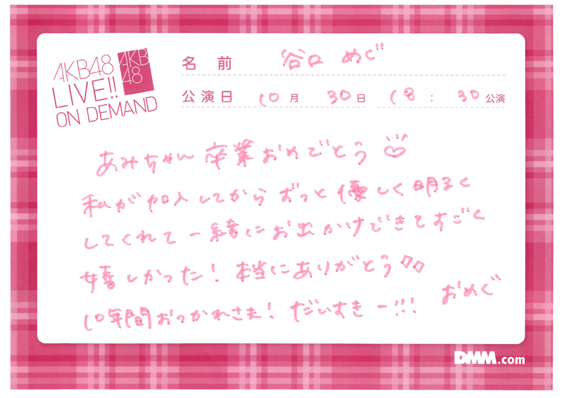 AKB48
LIVE!!
ON DEMAND
AKB
48
名 前 谷口 めぐ
公演日 10月 30日 18:30公演
あみちゃん卒業おめでとう
私が加入してからずっと優しく明るく
してくれて一緒にお出かけできてすごく
嬉しかった!本当にありがとう♡♡
10年間おつかれさま!だいすきー!!!
おめぐ
DMM.com